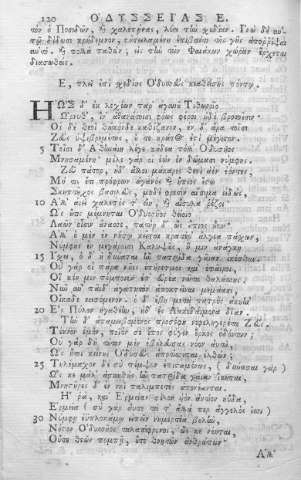 120 ΟΔΥΣΣΕΙΑΣ Ε.
Ε, πλω
ΗΩΣ δ' ἐκ λεχέων παρ' ἀγαυοῦ Τιθωνοῖο
Ὤρνυθ', ἵν' ἀθανάτοισι φόως φέροι ἠδὲ βροτοῖσιν·
Οἱ δὲ θεοὶ θῶκόνδε καθίζανον, ἐν δ' ἄρα τοῖσι
Ζεὺς ὑψιβρεμέτης, οὗ τε κράτος ἐστὶ μέγιστον.
5 Τοῖσι δ' Ἀθηναίη λέγε κήδεα πόλλ' Ὀδυσῆος
Μνησαμένη· μέλε γάρ οἱ ἐὼν ἐν δώμασι νύμφης·
Ζεῦ πάτερ, ἠδ' ἄλλοι μάκαρες θεοὶ αἰὲν ἐόντες,
Μή τις ἔτι πρόφρων ἀγανὸς καὶ ἤπιος ἔστω
Σκηπτοῦχος βασιλεὺς, μηδὲ φρεσὶν αἴσιμα εἰδώς·
10 Ἀλλ' αἰεὶ χαλεπός τ' εἴη, καὶ αἴσυλα ῥέζοι·
Ὡς οὔτις μέμνηται Ὀδυσσῆος θείοιο
Λαῶν οἷσιν ἄνασσε, πατὴρ δ' ὣς ἤπιος ἦεν.
Ἀλλ' ὁ μὲν ἐν νήσῳ κεῖται κρατέρ' ἄλγεα πάσχων,
Νύμφης ἐν μεγάροισι Καλυψοῦς, ἥ μιν ἀνάγκῃ
15 Ἴσχει, ὁ δ' οὐ δύναται ἣν πατρίδα γαῖαν ἱκέσθαι.
Οὐ γάρ οἱ πάρα νῆες ἐπήρετμοι καὶ ἑταῖροι,
Οἵ κέν μιν πέμποιεν ἐπ' εὐρέα νῶτα θαλάσσης.
Νῦν αὖ παῖδ' ἀγαπητὸν ἀποκτεῖναι μεμάασι,
Οἴκαδε νεισόμενον· ὁ δ' ἔβη μετὰ πατρὸς ἀκουὴν
20 Ἐς Πύλον ἠγαθέην, ἠδ' ἐς Λακεδαίμονα δῖαν.
Τὴν δ' ἀπαμειβόμενος προσέφη νεφεληγερέτα Ζεύς·
Τέκνον ἐμὸν, ποῖόν σε ἔπος φύγεν ἕρκος ὀδόντων·
Οὐ γὰρ δὴ τοῦτον μὲν ἐβούλευσας νόον αὐτὴ,
Ὡς ἤτοι κείνους Ὀδυσεὺς ἀποτίσεται ἐλθών;
25 Τηλέμαχον δὲ σὺ πέμψον ἐπισταμένως, ( δύνασαι γὰρ )
Ὥς κε μάλ' ἀσκηθὴς ἣν πατρίδα γαῖαν ἵκηται,
Μνηστῆρες δ' ἐν νηῒ παλιμπετὲς ἀπονέωνται.
Ἦ ῥα, καὶ Ἑρμείαν υἱὸν φίλον ἀντίον ηὔδα,
Ἑρμεία ( σὺ γὰρ αὖτε τά τ' ἄλλα περ ἄγγελός ἐσσι )
30 Νύμφῃ ἐϋπλοκάμῳ εἰπεῖν νημερτέα βουλὴν,
Νόστον Ὀδυσσῆος ταλασίφρονος, ὥς κε νέηται,
Οὔτε θεῶν πομπῇ, οὔτε θνητῶν ἀνθρώπων·
Ἀλλ'